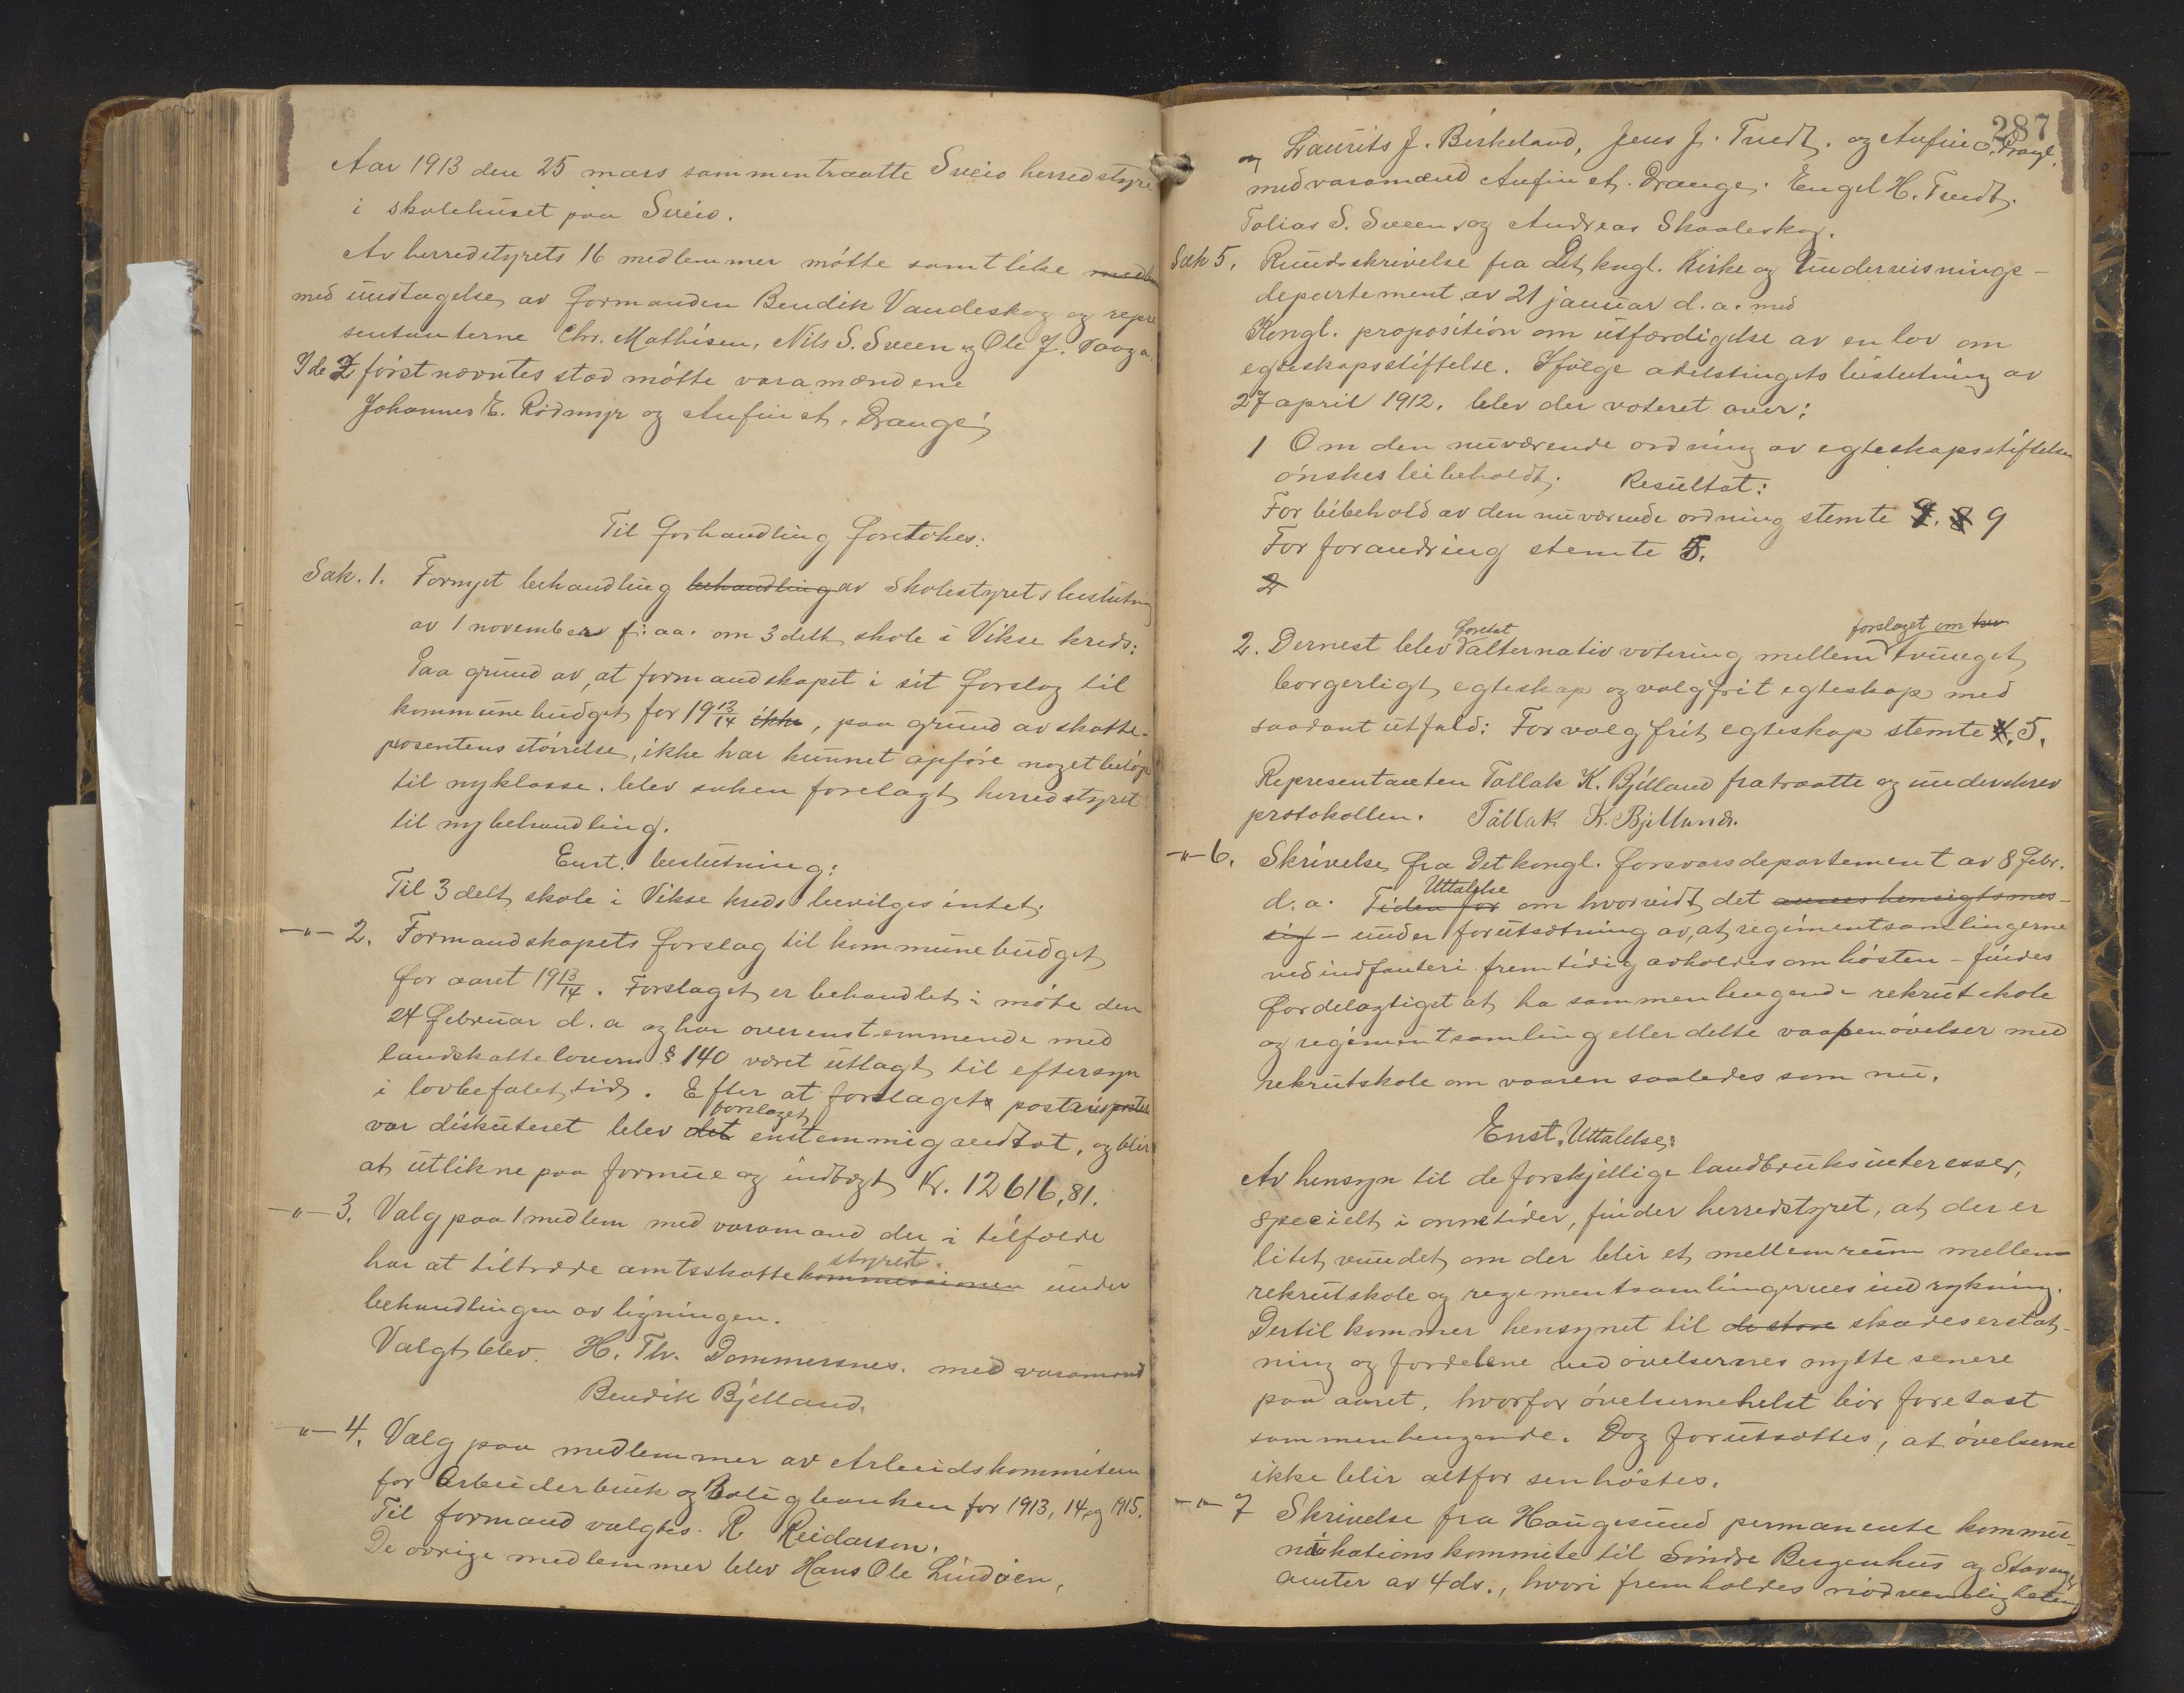 Aar 1913 den 25 mars sammentraatte Sveio herredstyre
i skolehuset paa Sveio.
Av herredstyrets 16 medlemmer møtte samtlike
med undtagelse av formanden Bendik Vandeskog og repre
sentanterne Chr. Mathisen, Nils S. Sveen og Ole J.
I de 2 først nævntes sted møtte varamændene
Johannes E. Rødmyr og Anfin A. Drange
Til forhandling foretokes:
Sak. 1. Fornyet behandling behandling av skolestyrets beslutning
av 1 november f. aa. om 3 delt skole i Vikse kreds:
Paa grund av, at formandskapet i sit forslag til
kommunebudget for 19 13/14 ikke, paa grund av skatte-
prosentens størrelse, ikke har kunnet opføre noget beløp
til ny klasse. blev saken forelagt herredstyret
til ny behandling.
Enst. beslutning:
Til 3 delt skole i Vikse kreds bevilges intet.
-"- 2. Formandskapets forslag til kommunebudget
for aaret 19 13/14. Forslaget er behandlet i møte den
24 februar d. a og har overenstemmende med
landskatteloven § 140 været utlagt til eftersyn
i lovbefalet tid. Efter at forslagets poster
forslaget
var diskuteret blev det enstemmig vedtat, og blir
at utlikne paa formue og indtægt Kr. 12616,81.
-"- 3. Valg paa 1 medlem med varamand der i tilfælde
styret.
har at tiltræde amtsskattekommissionen under
behandlingen av ligningen.
Valgt blev. H. Th. Dommersnes. med varamand
Bendik Bjelland.
-"- 4. Valg paa medlemmer av Arbeidskommiteen
for Arbeiderbruk og Boligbanken for 1913, 14 og 1915.
Til formand valgtes. R Reidarson.
De øvrige medlemmer blev Hans Ole Lindøen,
287
og Laurits J. Birkeland, Jens J. Tvedt. og Anfin O. Drange.
med varamænd Anfin A. Drange. Engel H. Tvedt.
Tobias S. Sveen og Andreas Skaaleskog.
Sak 5. Rundskrivelse fra Det kngl. Kirke og Undervisnings-
departement av 21 januar d. a. med
Kongl. proposition om utfærdigelse av en lov om
egteskapsstiftelse. Ifølge odelstingets beslutning av
27 april 1912. blev der voteret over:
1 Om den nuværende ordning av egteskapsstiftelsen
ønskes beibeholdt. Resultat:
For bibehold av den nuværende ordning stemte 9. 8 9
For forandring stemte 5.
2
foretat forslaget om
2. Dernest blev alternativ votering mellem tvunget
borgerligt egteskap og valgfrit egteskap med
saadant utfald: For valgfrit egteskap stemte 4. 5.
Representanten Tallak K. Bjelland fratraatte og underskrev
protokollen. Tallak K. Bjelland.
-"- 6. Skrivelse fra Det kongl. forsvarsdepartement av 8 febr.
Uttalelse
d. a. Tiden for om hvorvidt det ansees hensigtsmes-
sig - under forutsætning av, at regimentsamlingerne
ved indfanteri fremtidig avholdes om høsten - findes
fordelagtigst at ha sammenhengende rekrutskole
og regimentsamling eller delte vaapenøvelser med
rekrutskole om vaaren saaledes som nu.
Enst. Uttalelse:
Av hensyn til de forskjellige landbruksinteresser,
specielt i onnetider, finder herredstyret, at der er
litet vundet om der blir et mellemrum mellem
rekrutskole og regimentsamlingernes indrykning.
Dertil kommer hensynet til de store skadeserstat-
ning og fordelene ved øvelsernes nytte senere
paa aaret, hvorfor øvelserne helst bør foretast
sammenhengende. Dog forutsættes, at øvelserne
ikke blir altfor senhøstes.
-"- 7 Skrivelse fra Haugesund permanente kommu-
nikationskommite til Søndre Bergenhus og Stavanger
amter av 4 ds., hvori fremholdes nødvendigheten